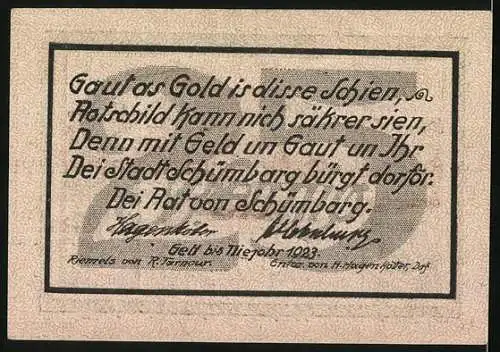 Gaut as Gold is disse Schien,
Rotschild kann nich säkrer sien,
Denn mit Geld un Gaut un Ihr
Dei Stadt Schümbarg bürgt dorför.
Dei Rat von Schümbarg.
Hagenköter
Gelt bis Niejohr 1923.
Riemels von R. Tarnow. Entw. von H. Hagenköter, Dsf